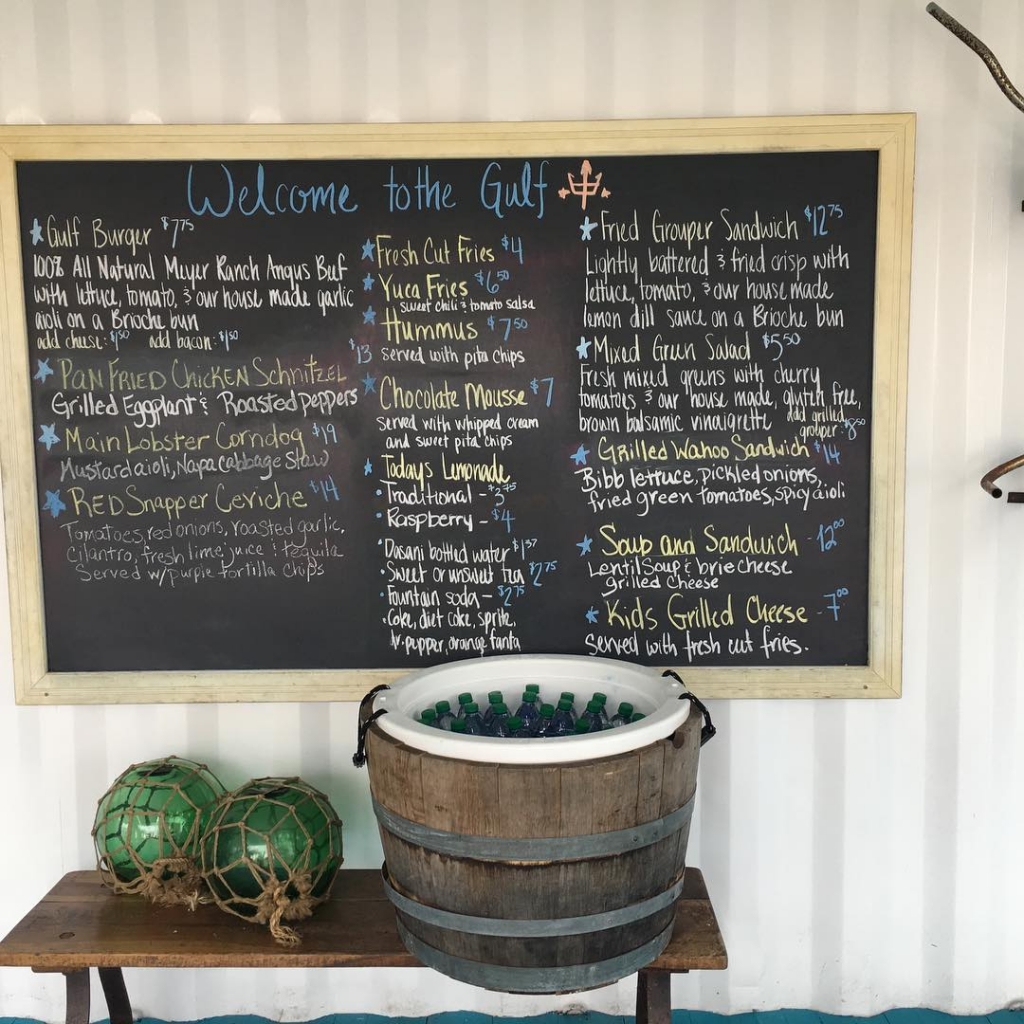 Welcome to the Gulf
Gulf Burger $7.75
100% All Natural Meyer Ranch Angus Beef
with lettuce, tomato, & our house made garlic
aioli on a Brioche bun
add cheese: $1.50 add bacon: $1.50
Pan Fried Chicken Schnitzel $13
Grilled Eggplant & Roasted peppers
Main Lobster Corndog $19
Mustard aioli, Napa cabbage Slaw
RED Snapper Ceviche $14
Tomatoes, red onions, roasted garlic,
cilantro, fresh lime juice & tequila
Served w/purple tortilla chips
Fresh Cut Fries $4
Yuca Fries $6.50
sweet chili & tomato salsa
Hummus $7.50
served with pita chips
Chocolate Mousse $7
served with whipped cream
and sweet pita chips
Todays Lemonade
Traditional - $3.75
Raspberry - $4
Dasani bottled water $1.37
Sweet or unsweet tea $2.75
Fountain soda - $2.75
Coke, diet coke, sprite,
dr. pepper, orange fanta
Fried Grouper Sandwich $12.75
Lightly battered & fried crisp with
lettuce, tomato, & our house made
lemon dill sauce on a Brioche bun
Mixed Green Salad $5.50
Fresh mixed greens with cherry
tomatoes & our house made, gluten free,
brown balsamic vinaigrette add grilled
grouper $8.50
Grilled Wahoo Sandwich $14
Bibb lettuce, pickled onions,
fried green tomatoes, spicy aioli
Soup and Sandwich - 12.00
Lentil Soup & brie cheese
grilled cheese
Kids Grilled Cheese - 7.00
Served with fresh cut fries.